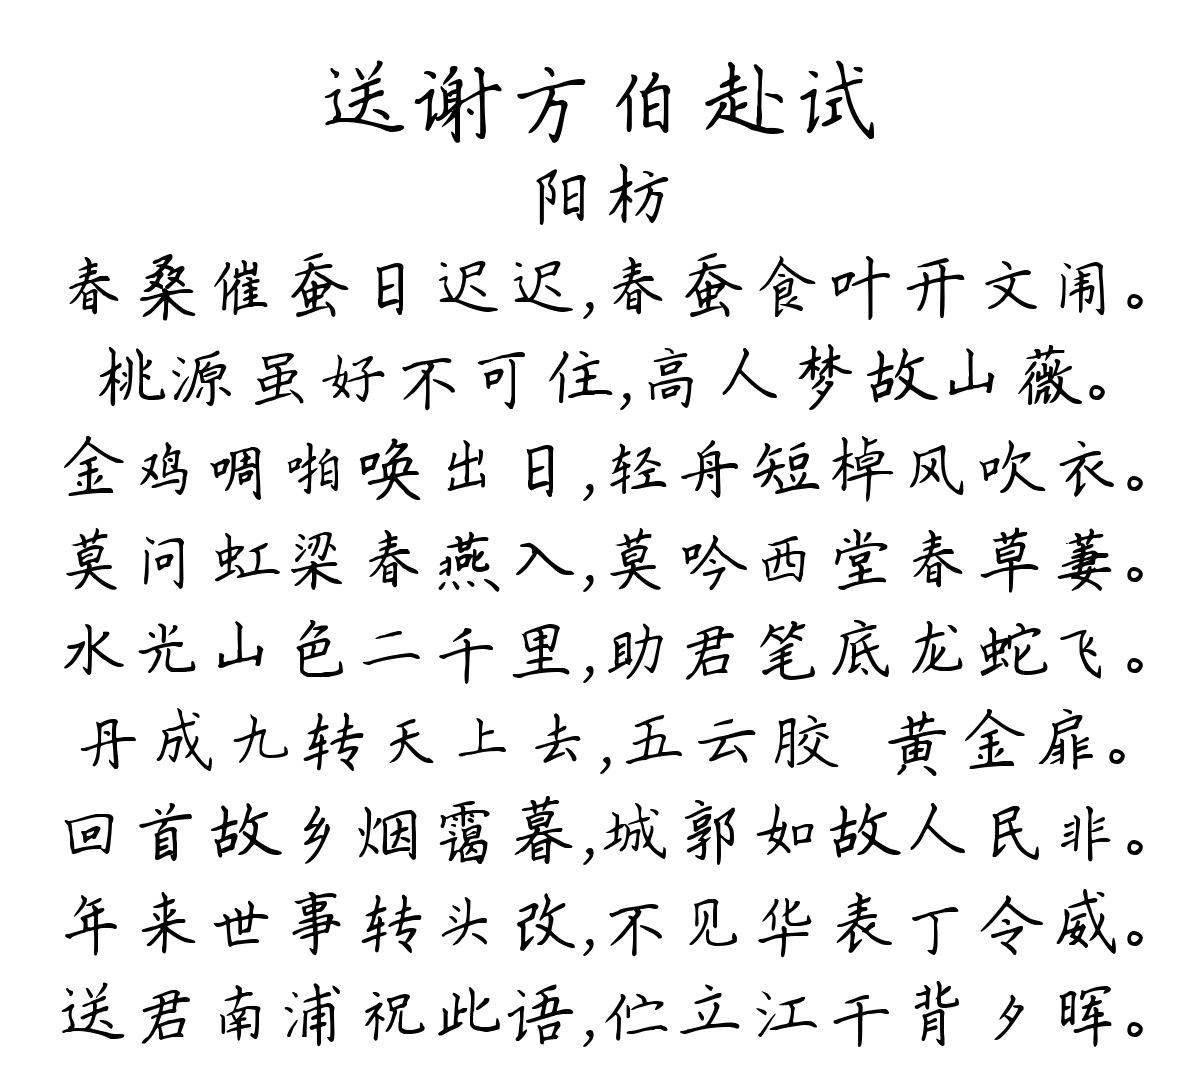 送谢方伯赴试
阳枋
春桑催蚕日迟迟,春蚕食叶开文闱。
桃源虽好不可住,高人梦故山薇。
金鸡啁啪唤出日,轻舟短棹风吹衣。
莫问虹梁春燕入,莫吟西堂春草萋。
水光山色二千里,助君笔底龙蛇飞。
丹成九转天上去,五云胶 黄金扉。
回首故乡烟霭暮,城郭如故人民非。
年来世事转头改,不见华表丁令威。
送君南浦祝此语,伫立江干背夕晖。